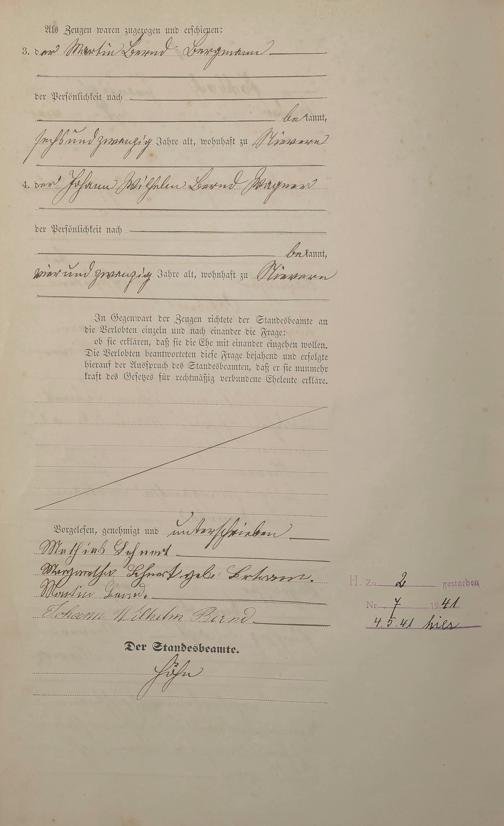 Als Zeugen waren zugezogen und erschienen:
3. der Martin Bernd Bergmann
der Persönlichkeit nach
bekannt,
sechsundzwanzig Jahre alt, wohnhaft zu Nievern
4. der Johann Wilhelm Bernd Wagner
der Persönlichkeit nach
bekannt,
vierundzwanzig Jahre alt, wohnhaft zu Nievern
In Gegenwart der Zeugen richtete der Standesbeamte an
die Verlobten einzeln und nach einander die Frage:
ob sie erklären, daß sie die Ehe mit einander eingehen wollen.
Die Verlobten beantworteten diese Frage bejahend und erfolgte
hierauf der Ausspruch des Standesbeamten, daß er sie nunmehr
kraft des Gesetzes für rechtmäßig verbundene Eheleute erkläre.
Vorgelesen, genehmigt und unterschrieben
Mathias Lehnert
Margaretha Lehnert geb.
Martin Bernd.
Johann Wilhelm Bernd
H. Zu 2 gestorben
Nr. 7 1941
4.5.41 hier
Der Standesbeamte.
Höhn